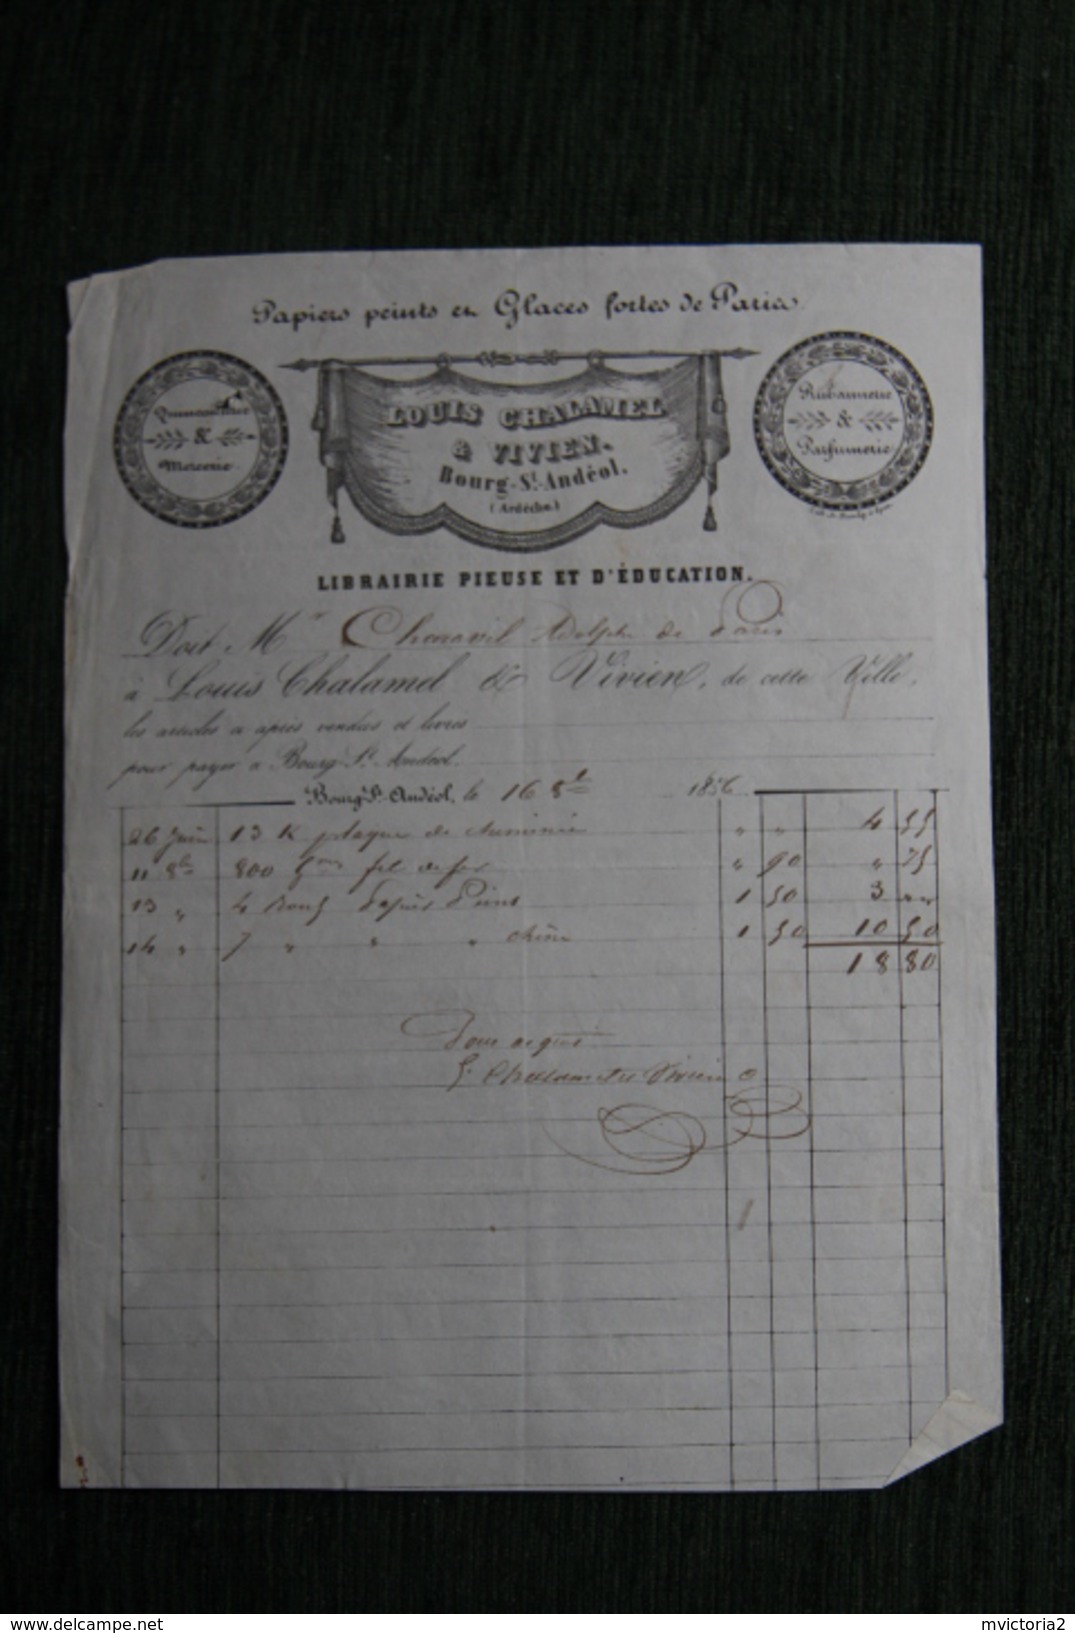 Papiers peints en Glaces fortes de Paris
Quincaillerie
&
Mercerie
LOUIS CHALAMEL
& VIVIEN.
Bourg-St-Andéol.
(Ardèche.)
Rubannerie
&
Parfumerie
LIBRAIRIE PIEUSE ET D'ÉDUCATION.
Doit Mr Adolphe de Paris
à Louis Chalamel & Vivien, de cette Ville,
les articles ci après vendus et livrés
pour payer à Bourg St Andéol.
Bourg-St-Andéol, le 16 8e 1856
26 Juin 13 K plaque de cheminée " " 4 55
11 8bre 800 fil de fer " 90 " 75
13 " 4 1 50 3 ""
14 " 7 " " " chêne 1 50 10 50
18 80
Pour acquit
L. Chalamel & Vivien
www.delcampe.net
mvictoria2